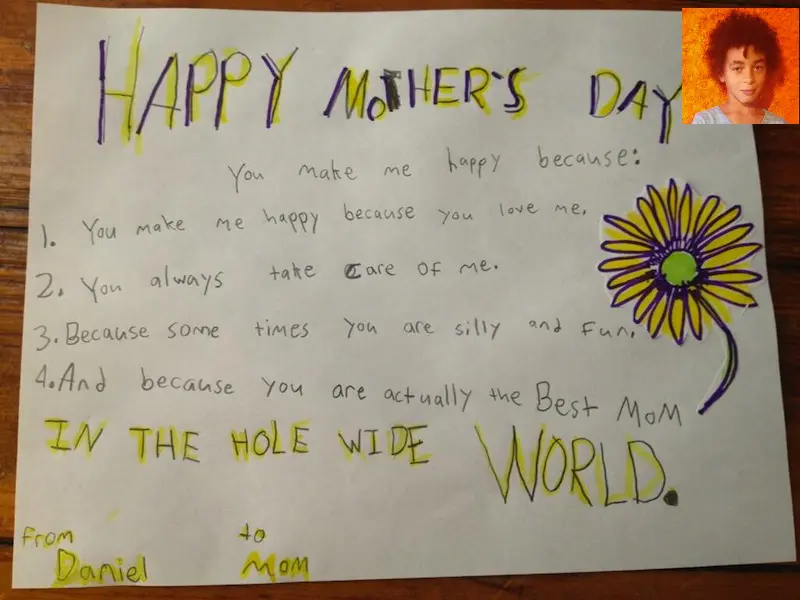 HAPPY MOTHER'S DAY
You make me happy because:
1. You make me happy because you love me.
2. You always take care of me.
3. Because some times you are silly and fun.
4. And because you are actually the Best MoM
IN THE HOLE WIDE WORLD.
From to
Daniel Mom